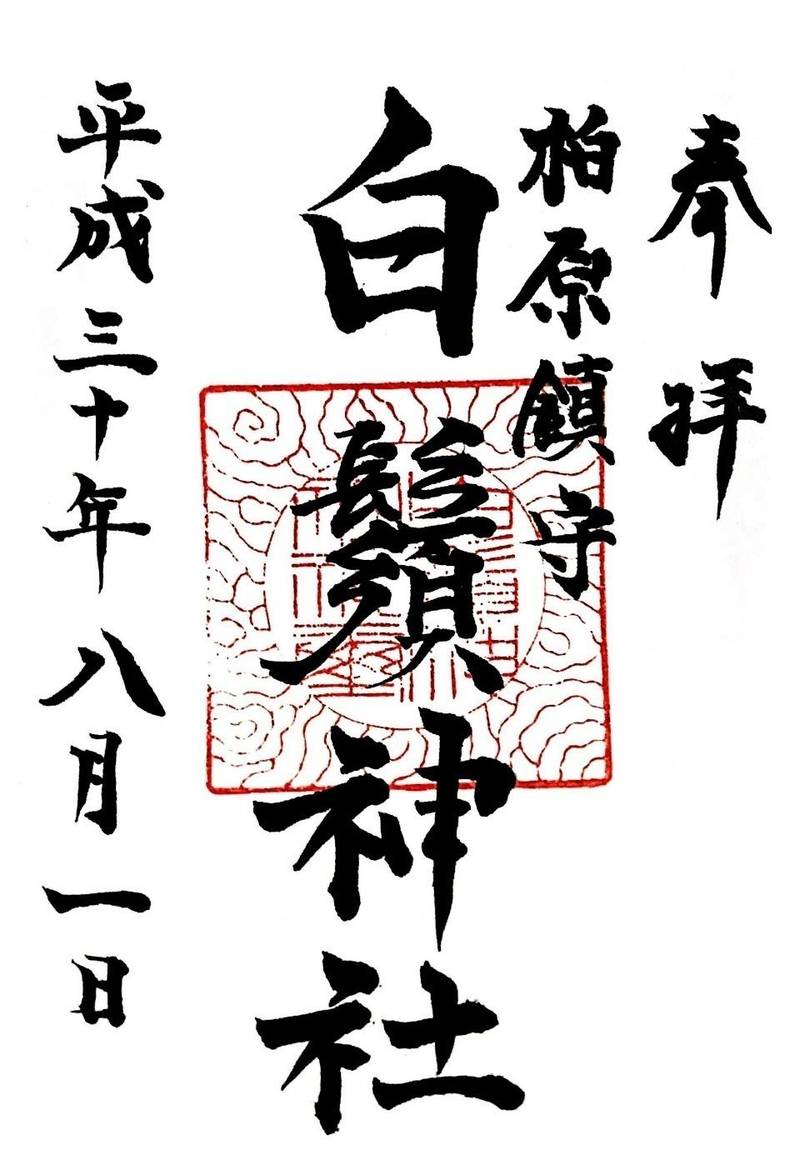 奉拝
柏原鎮守
白鬚神社
平成三十年八月一日